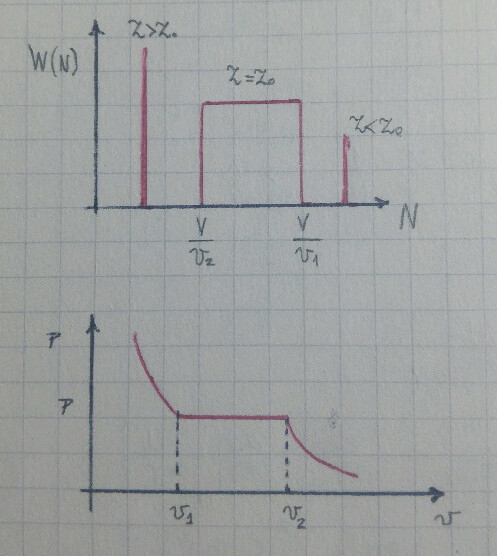 Z>Z₀
W(N)
Z=Z₀
Z<Z₀
N
V/v₂
V/v₁
P
P
v₁
v₂
v